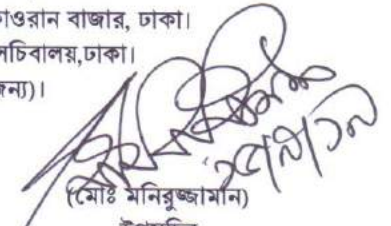 াওরান বাজার, ঢাকা।
সচিবালয়,ঢাকা।
জন্য)।
(মোঃ মনিরুজ্জামান)